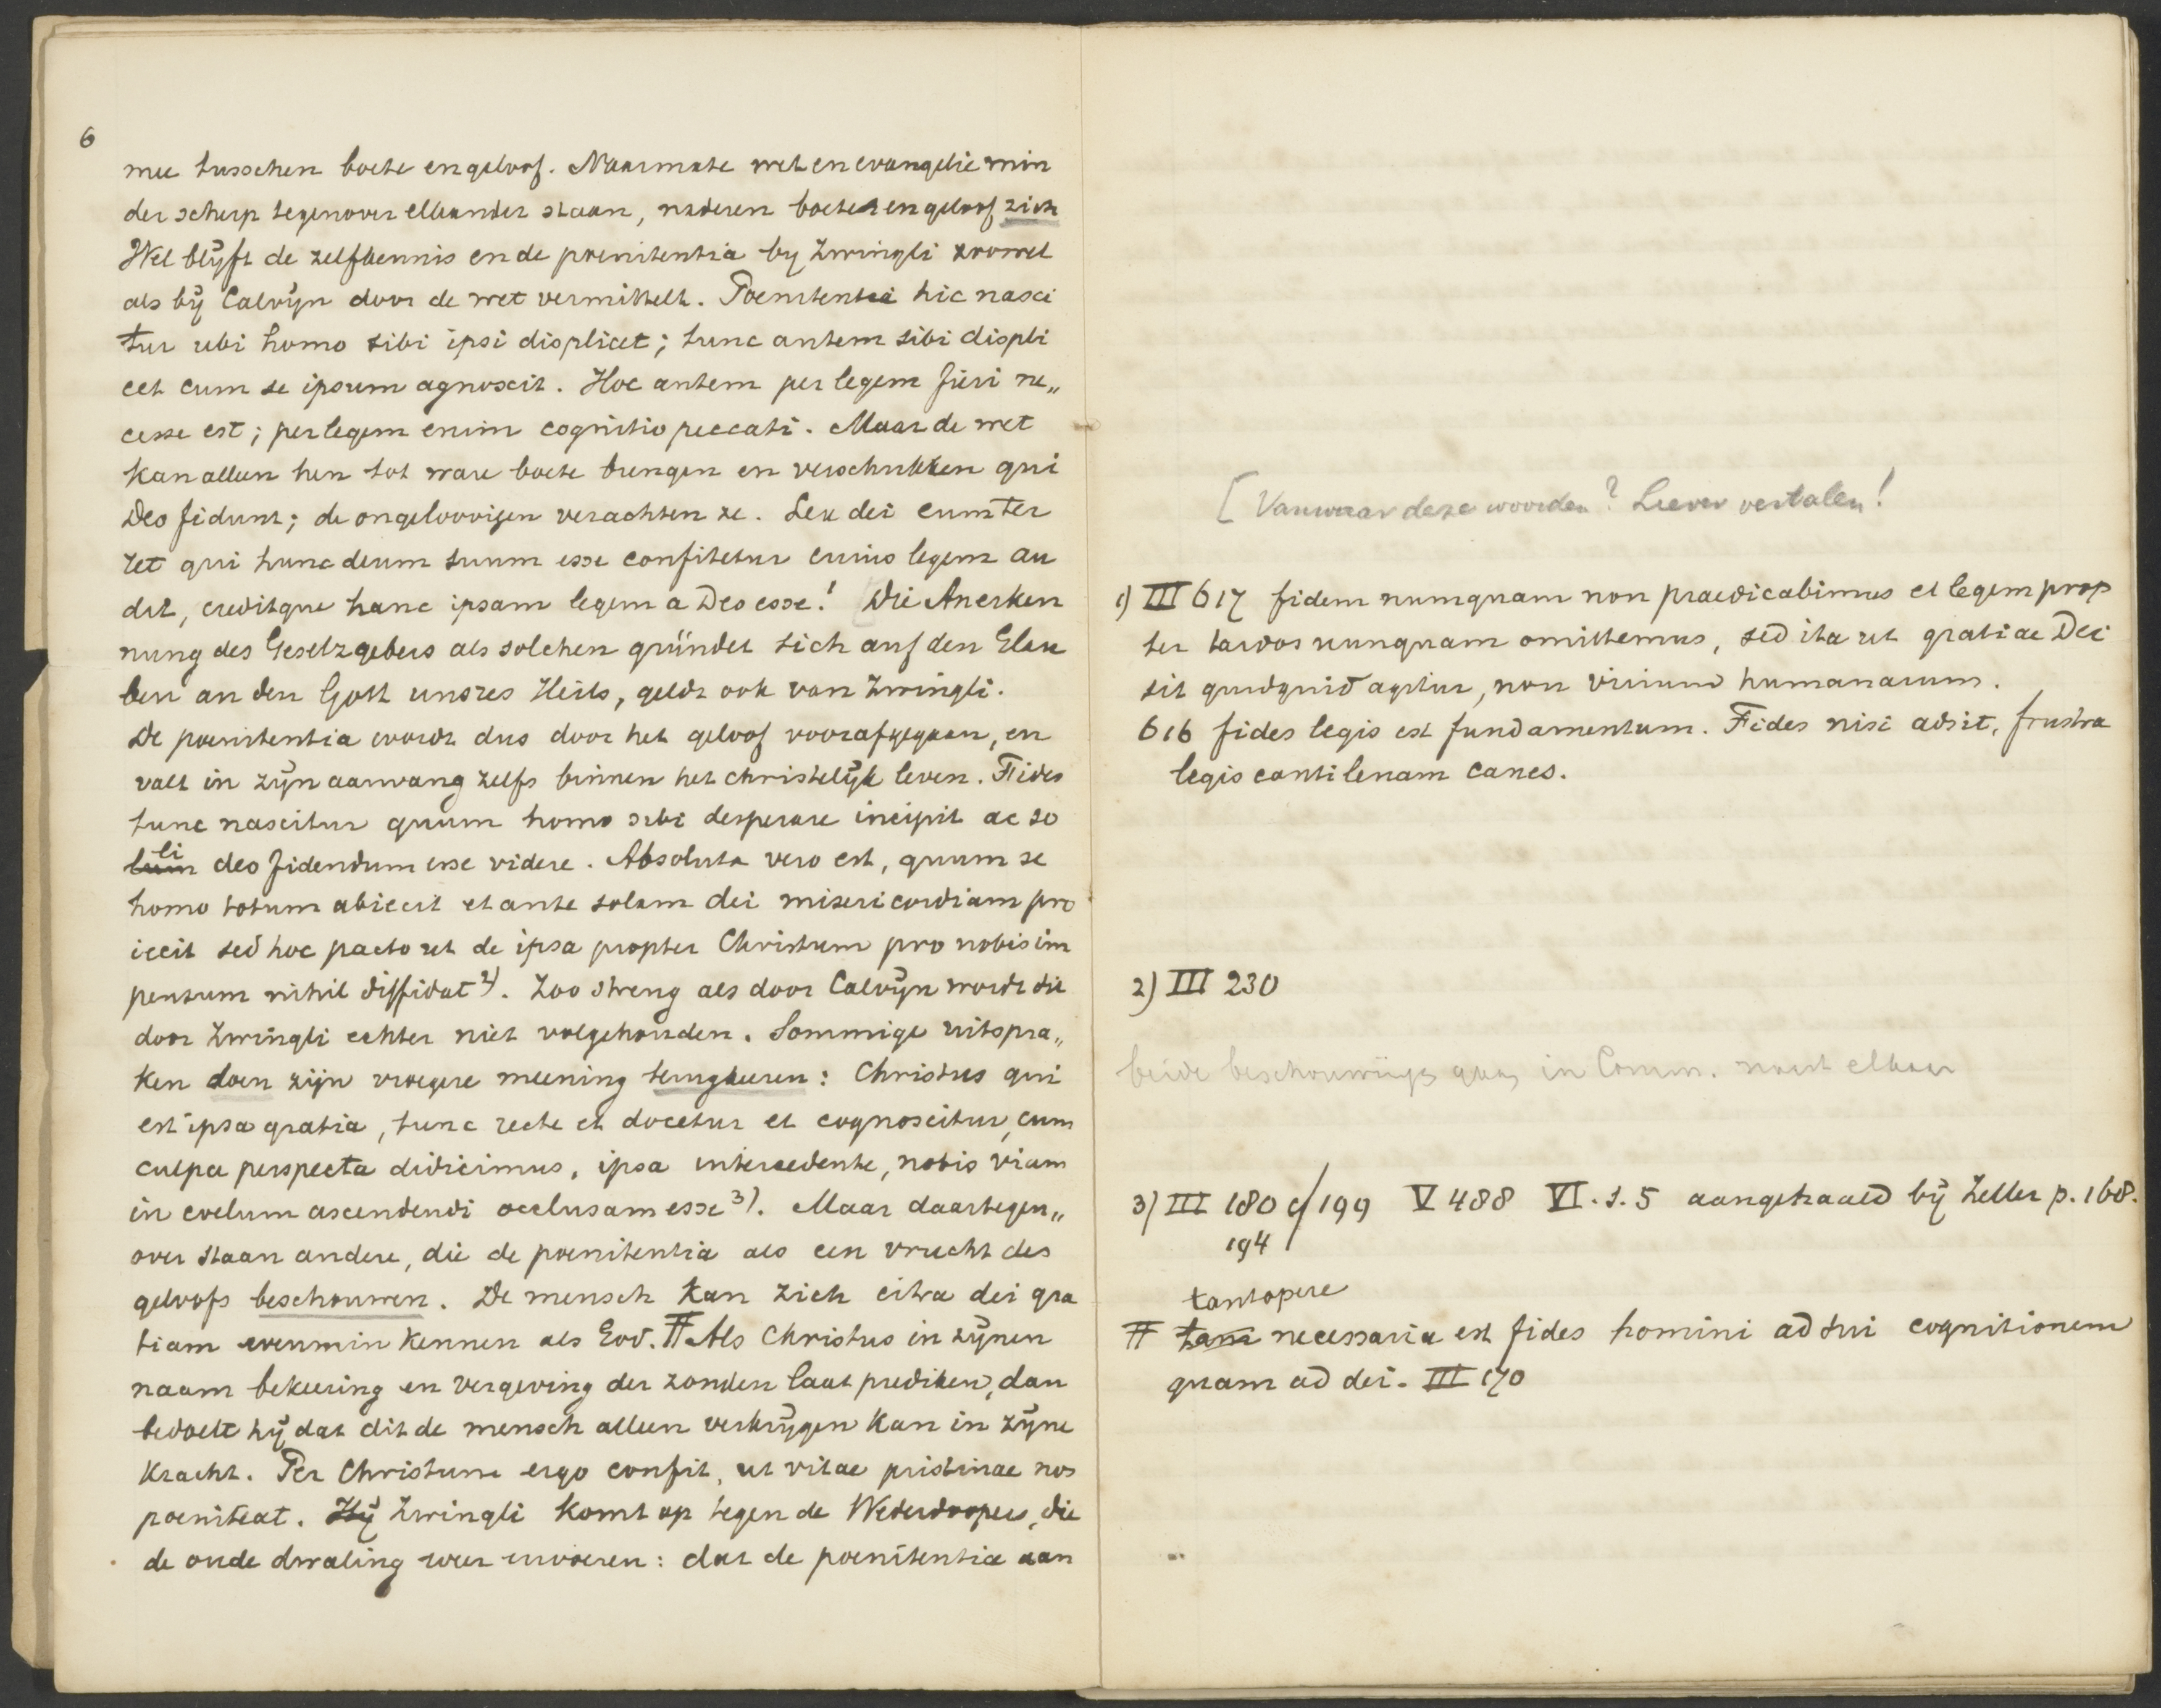 6
mee tusschen boete en geloof. Naarmate wet en evangelie min
der scherp tegenover elkander staan, naderen boete en geloof zich
Wel blijft de zelfkennis en de poenitentia by Zwingli zoowel
als bij Calvijn door de wet vermittelt. Poenitentia hic nasci
tur ubi homo sibi ipsi displicet; tunc autem sibi displi
cet cum se ipsum agnoscit. Hoc autem per legem fieri ne„
cesse est; per legem enim cognitio peccati. Maar de wet
kan alleen hen tot ware boete brengen en verschrikken qui
Deo fidunt; de ongeloovigen verachten ze. Lex dei eum ter
ret qui hunc deum suum esse confitetur cuius legem au
dit, creditque hanc ipsam legem a Deo esse! Die Anerken
nung des Gesetzgebers als solchen gründet sich auf den Glau
ben an den Gott unsres Heils, geldt ook van Zwingli.
De poenitentia wordt dus door het geloof voorafgegaan, en
valt in zijn aanvang zelfs binnen het christelijk leven. Fides
tunc nascitur quum homo sibi desperare incipit ac so
li
lum deo fidendum esse videre. Absoluta vero est, quum se
homo totum abiecit et ante solam dei misericordiam pro
iecit sed hoc pacto ut de ipsa propter Christum pro nobis im
pensum nihil diffidat 2). Zoo streng als door Calvijn wordt dit
door Zwingli echter niet volgehouden. Sommige uitspra„
ken doen zijn vroegere meening terugkeeren: Christus qui
est ipsa gratia, tunc recte et docetur et cognoscitur, cum
culpa perspecta didicimus, ipsa intercedente, nobis viam
in coelum ascendendi occlusam esse 3). Maar daartegen„
over staan andere, die de poenitentia als een vrucht des
geloofs beschouwen. De mensch kan zich citra dei gra
tiam evenmin kennen als God. # Als Christus in zijnen
naam bekeering en vergeving der zonden laat prediken, dan
bedoelt hij dat dit de mensch alleen verkrijgen kan in zijne
kracht. Per Christum ergo confit, ut vitae pristinae nos
poeniteat. Hij Zwingli komt op tegen de Wederdoopers, die
de oude dwaling weer invoeren: dat de poenitentia aan
[ Vanwaar deze woorden? Liever vertalen!
1) III 617 fidem numquam non praedicabimus et legem prop
ter tardos nunquam omittemus, sed ita ut gratiae Dei
sit quidquid agitur, non virium humanarum.
616 fides legis est fundamentum. Fides nisi adsit, frustra
legis cantilenam canes.
2) III 230
beide beschouwingen in Comm. naast elkaar
3) III 180 cf 199 V 488 VI. s. 5 aangehaald bij Zeller p. 168.
194
tantopere
# tam necessaria est fides homini ad sui cognitionem
quam ad dei. III 170